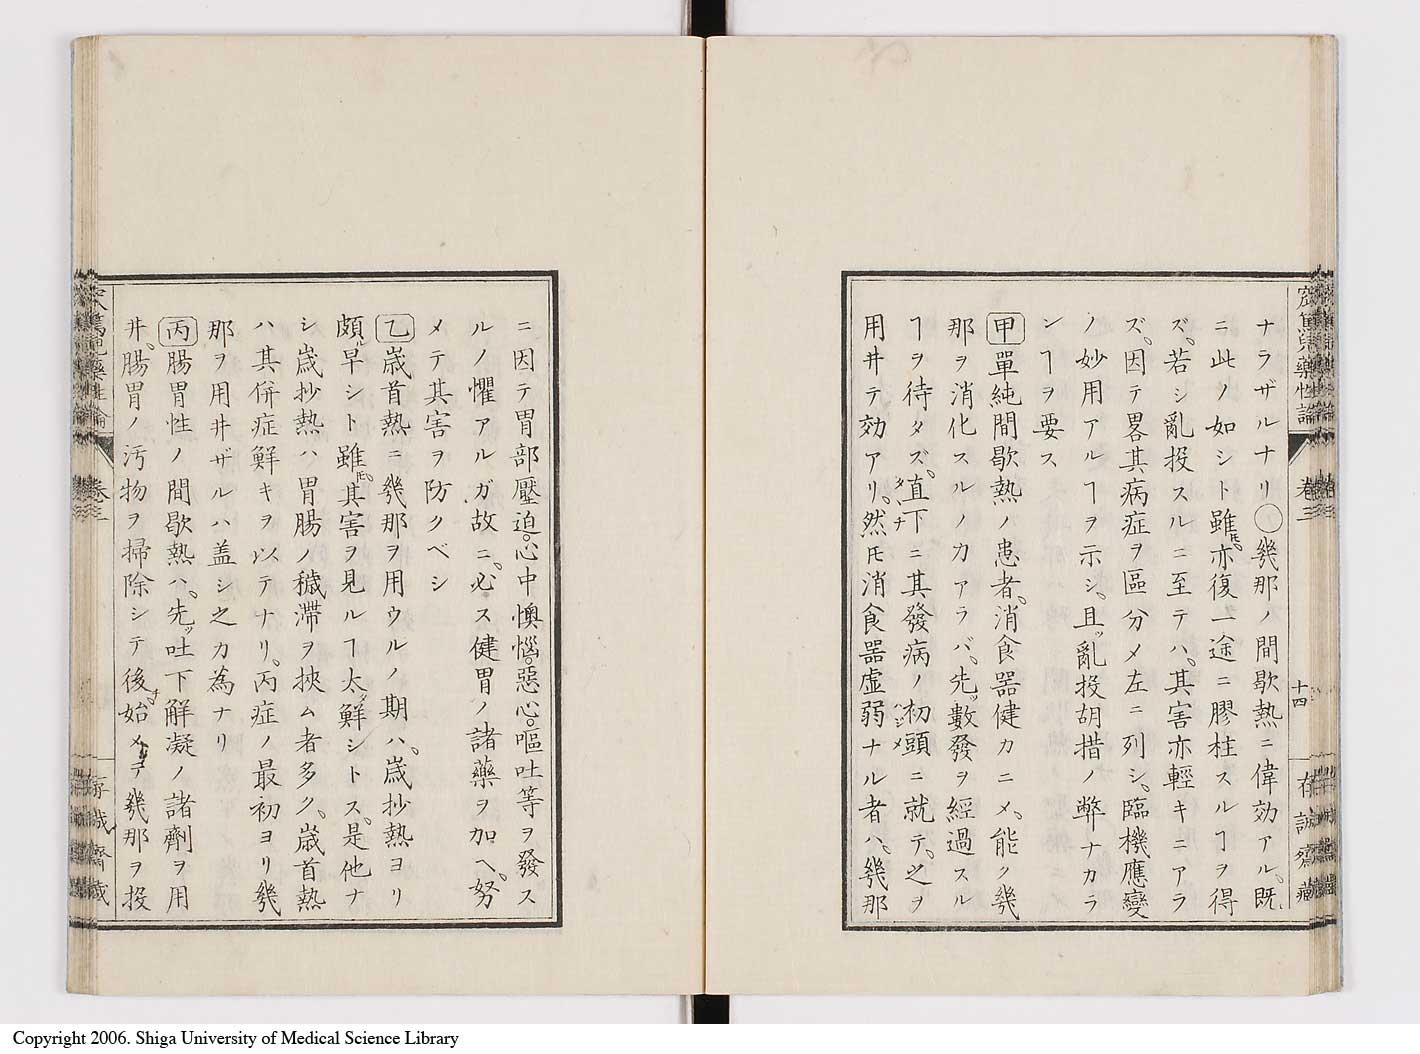 ナラザルナリ○幾那ノ間歇熱ニ偉効アル。既
ニ此ノ如シト雖𪜈。亦復一途ニ膠柱スルヿヲ得
ズ。若シ亂投スルニ至テハ。其害亦輕キニアラ
ズ。因テ畧其病症ヲ區分メ左ニ列シ。臨機應變
ノ妙用アルヿヲ示シ。且ッ亂投胡措ノ弊ナカラ
ンヿヲ要ス
甲單純間歇熱ノ患者。消食器健カニメ。能ク幾
那ヲ消化スルノカアラバ。先ッ數發ヲ經過スル
ヿヲ待タズ。直下ニ其發病ノ初頭ニ就テ。之ヲ
タヾナ
ハジメ
用井テ効アリ。然𪜈消食器虛弱ナル者ハ。幾那
卷三
十四
ニ因テ胃部壓迫。心中懊惱。惡心。嘔吐等ヲ發ス
ルノ懼アルガ故ニ。必ス健胃ノ諸藥ヲ加ヘ。努
メテ其害ヲ防クベシ
乙歳首熱ニ幾那ヲ用ウルノ期ハ。歳抄熱ヨリ
頗ル早シト雖𪜈。其害ヲ見ルヿ太タ鮮シトス。是他ナ
シ歳抄熱ハ胃腸ノ穢滞ヲ挾ム者多ク。歳首熱
ハ其併症鮮キヲ以テナリ。丙症ノ最初ヨリ幾
那ヲ用井ザルハ盖シ之カ為ナリ
丙腸胃性ノ間歇熱ハ。先ッ吐下解凝ノ諸劑ヲ用
井。腸胃ノ汚物ヲ掃除シテ後チ始メテ幾那ヲ投
卷三
Copyright 2006. Shiga University of Medical Science Library